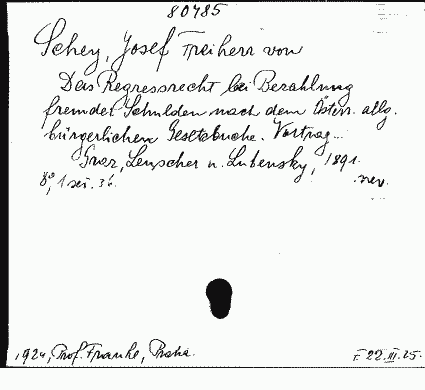 80785
Schey, Josef Freiherr von
Das Regressrecht bei Bezahlung
fremder Schulden nach dem Österr. allg.
bürgerlichen Gesetzbuche. Vortrag...
Graz, Leuscher u. Lubensky, 1891.
8°, 36. nev.
1924, Prof. Franke, Praha. r. 22.III.25.